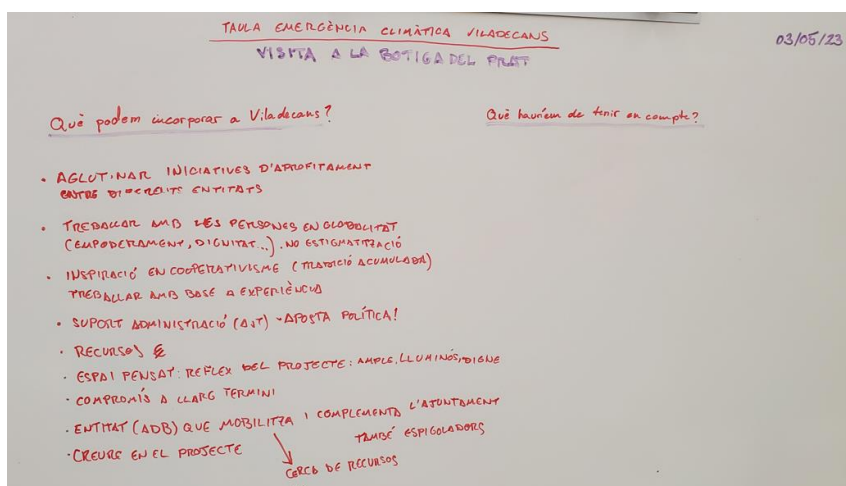 TAULA EMERGÈNCIA CLIMÀTICA VILADECANS
VISITA A LA BOTIGA DEL PRAT
03/05/23
Què podem incorporar a Viladecans?
Què hauríem de tenir en compte?
• AGLUTINAR INICIATIVES D'APROFITAMENT
ENTRE DIFERENTS ENTITATS
• TREBALLAR AMB LES PERSONES EN GLOBALITAT
(EMPODERAMENT, DIGNITAT...). NO ESTIGMATITZACIÓ
• INSPIRACIÓ EN COOPERATIVISME (TRADICIÓ ACUMULADA)
TREBALLAR AMB BASE A EXPERIÈNCIA
• SUPORT ADMINISTRACIÓ (AJT) - APOSTA POLÍTICA!
• RECURSOS €
• ESPAI PENSAT: REFLEX DEL PROJECTE: AMPLE, LLUMINÓS, DIGNE
• COMPROMÍS A LLARG TERMINI
• ENTITAT (ADB) QUE MOBILITZA I COMPLEMENTA L'AJUNTAMENT
TAMBÉ ESPIGOLADORS
• CREURE EN EL PROJECTE
CERCA DE RECURSOS